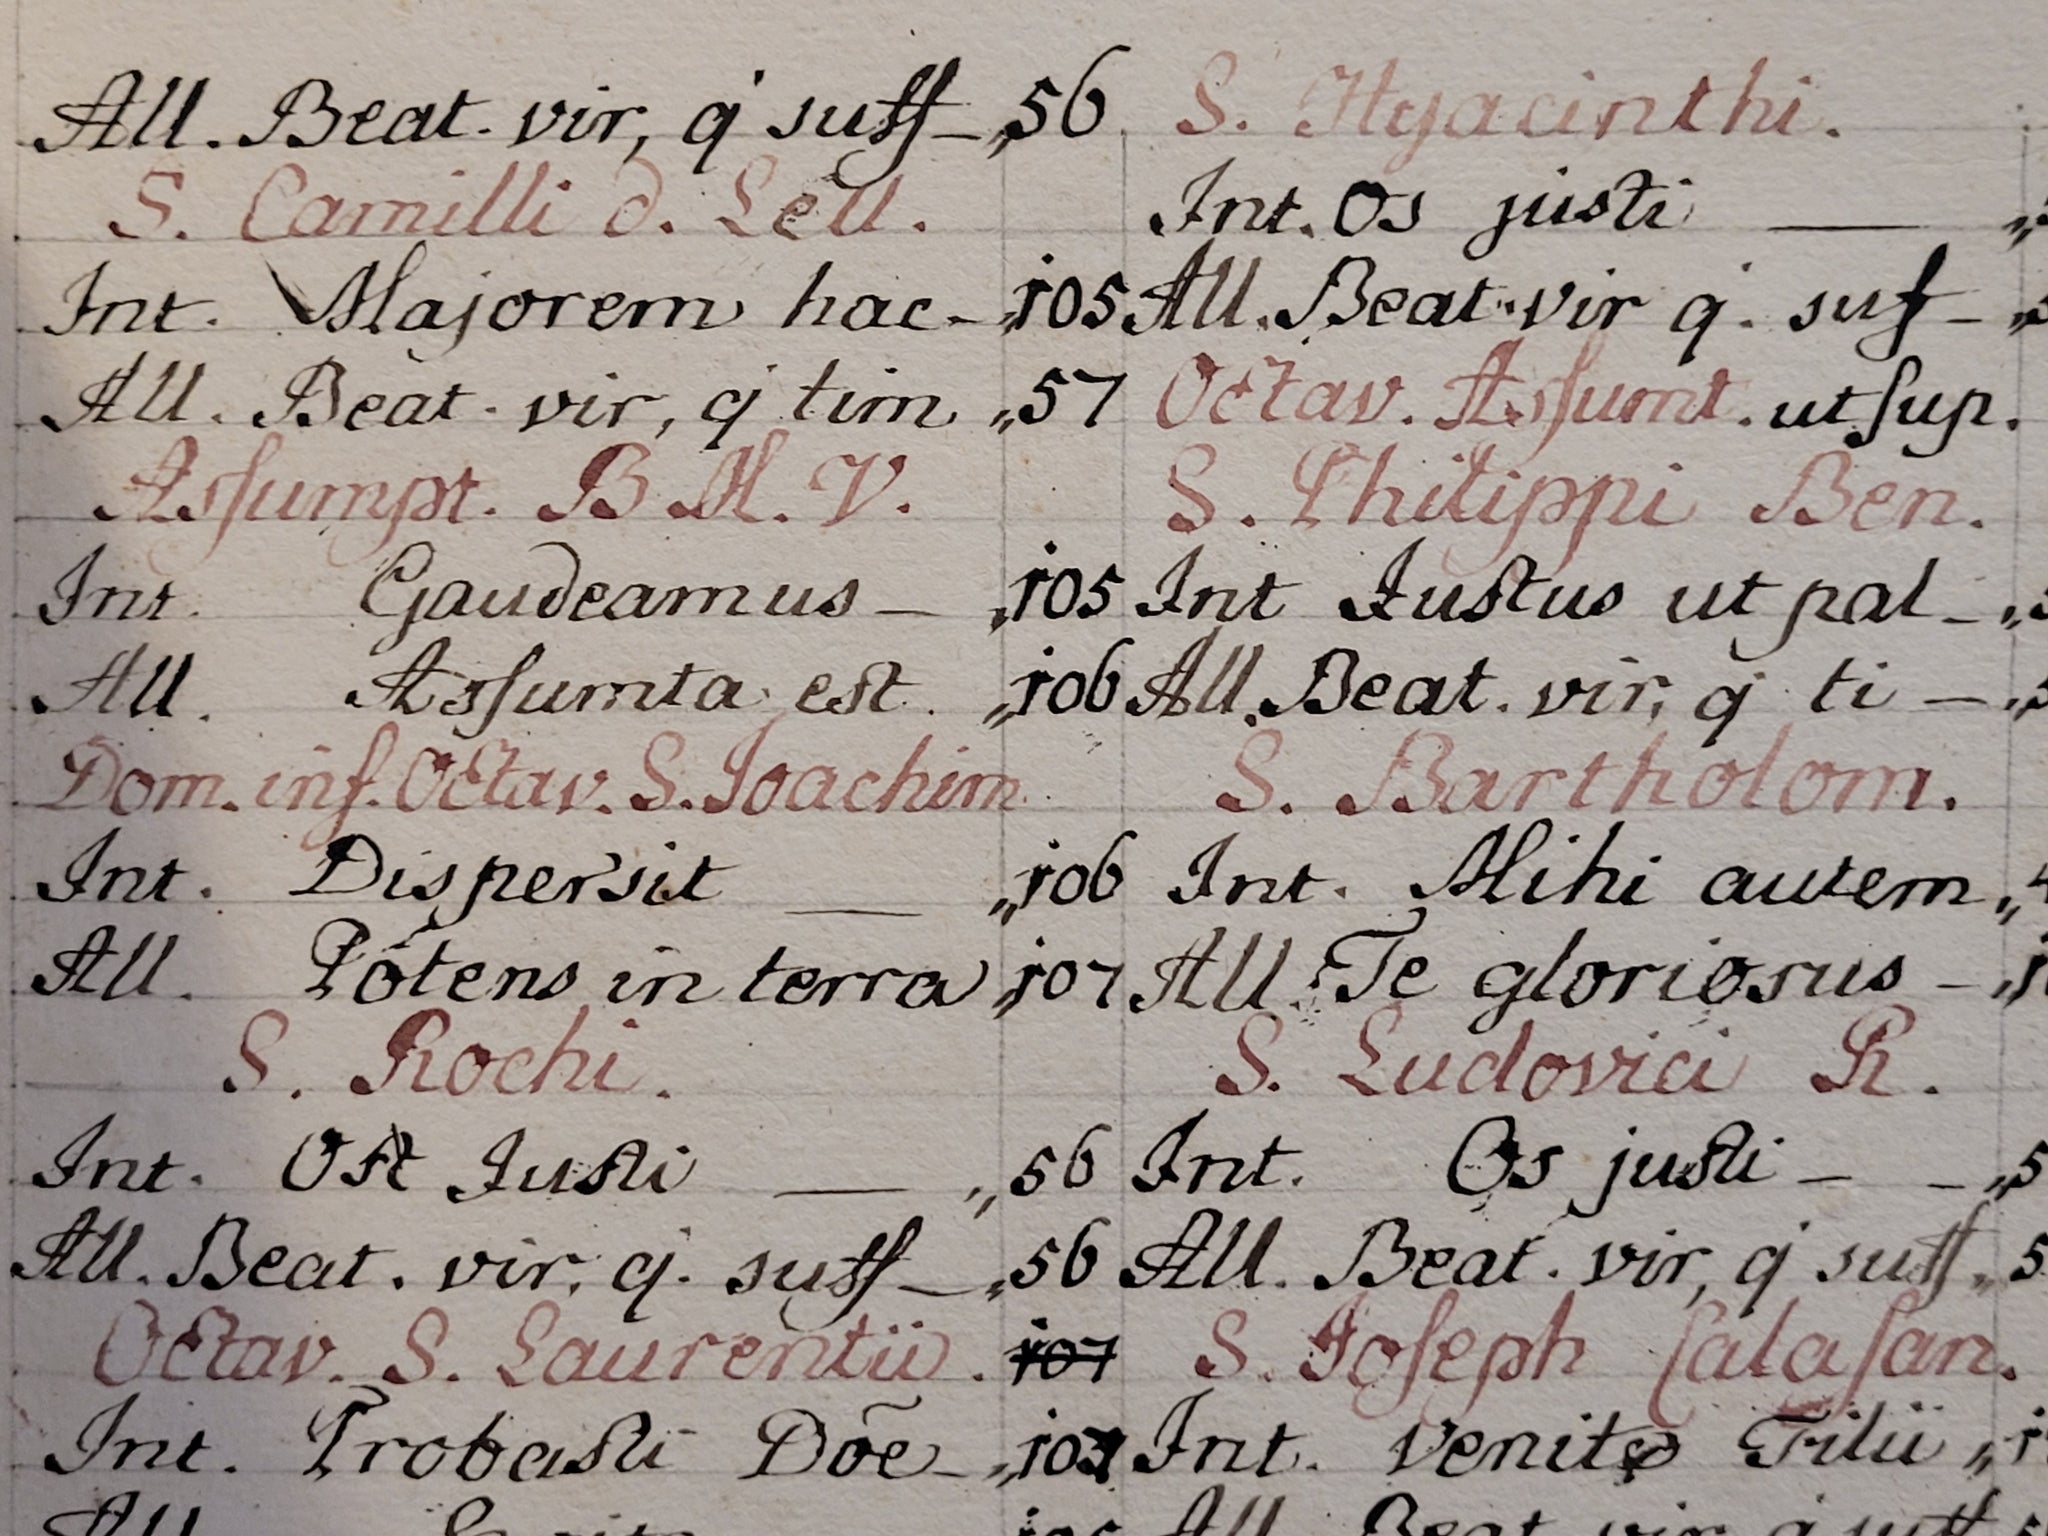 All. Beat. vir, q suff – „ 56
S. Camilli d. Lell.
Int. Majorem hac – „ 105
All. Beat. vir, q tim „ 57
Assumpt. B M. V.
Int. Gaudeamus – „ 105
All. Assumta est. „ 106
Dom. inf. Octav. S. Joachim
Int. Dispersit — „ 106
All. Potens in terra „ 107
S. Rochi.
Int. Ost Justi — „ 56
All. Beat. vir, q. suff – „ 56
Octav. S. Laurentii. 107
Int. Probasti Dōe – „ 107
All.
S. Hyacinthi.
Int. Os justi — „
All. Beat. vir q. suf – „
Octav. Assumt. ut sup.
S. Philippi Ben.
Int Justus ut pal – „
All. Beat. vir, q ti – „
S. Bartholom.
Int. Mihi autem „ 4
All. Te gloriosus – „
S. Ludovici R.
Int. Os justi – – „ 5
All. Beat. vir, q suff „ 5
S. Joseph Calasan.
Int. Venite Filii „
All. Beat vir q suff